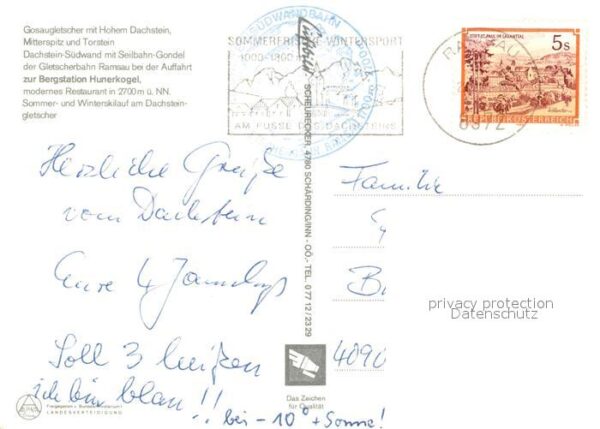 Gosaugletscher mit Hohem Dachstein,
Mitterspitz und Torstein
Dachstein-Südwand mit Seilbahn-Gondel
der Gletscherbahn Ramsau bei der Auffahrt
zur Bergstation Hunerkogel,
modernes Restaurant in 2700 m ü. NN.
Sommer- und Winterskilauf am Dachstein-
gletscher
SÜDWANDBAHN
SOMMERFRISCHE-WINTERSPORT
AM FUSSE DES DACHSTEINS
RAMSAU
8972
5s
REPUBLIK ÖSTERREICH
SCHEURECKER, 4780 SCHÄRDING/INN - OÖ., TEL. 0 77 12 / 23 29
Herzliche Grüße
vom Dachstein
Eure 4
Soll 3 heißen
ich bin blau!!
bei -10° + Sonne!
Familie
B
4090
privacy protection
Datenschutz
Das Zeichen
für Qualität
LANDESVERTEIDIGUNG